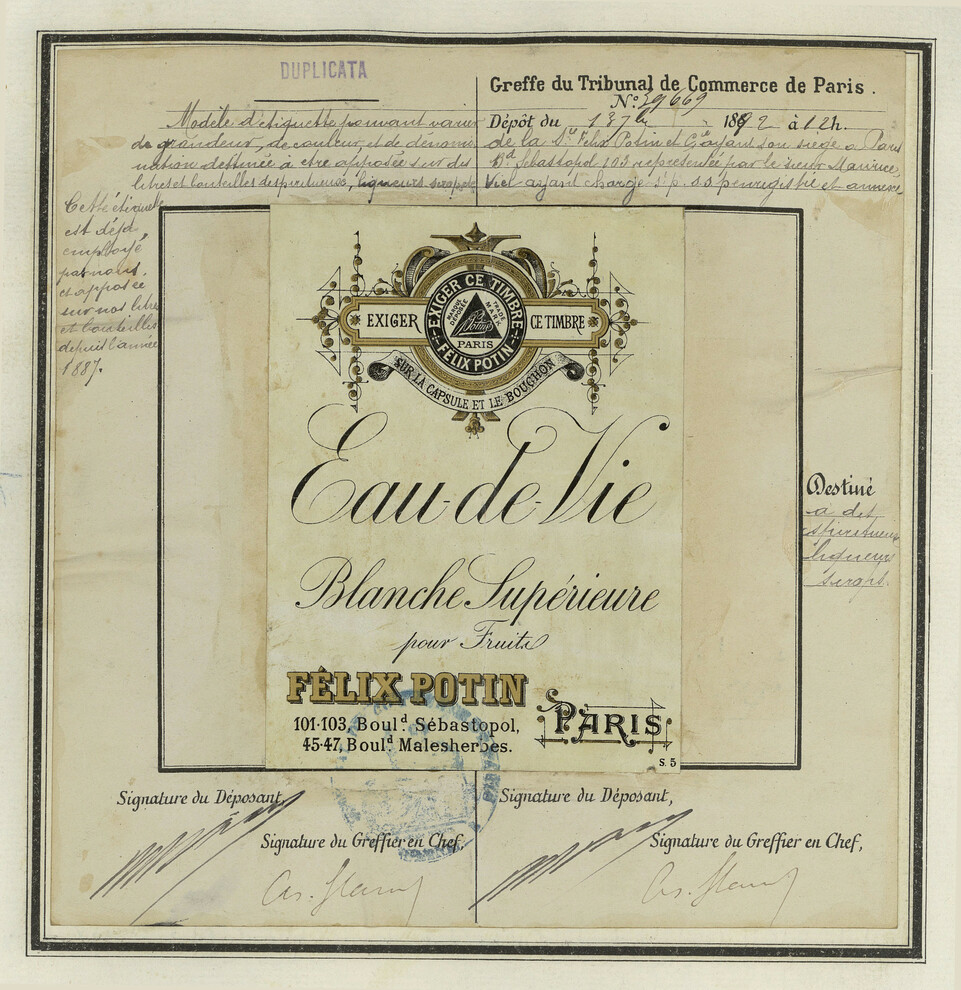 DUPLICATA
Greffe du Tribunal de Commerce de Paris.
N° 39669
Dépôt du 13 7bre 1892 à 12h.
de la Sté Félix Potin et Cie ayant son siège à Paris
Bd Sébastopol 103 représentée par le sieur Maurice
Viel ayant chargé
Modèle d'étiquette pouvant varier
de grandeur, de couleur, et de dénomi
nation destinée à être apposée sur des
litres et bouteilles de spiritueux, liqueurs
Cette étiquette
est déjà
employé
par nous.
et apposée
sur nos litres
et bouteilles
depuis l'année
1887.
EXIGER CE TIMBRE
FELIX POTIN
MARQUE DÉPOSÉE
TRADE MARK
PARIS
EXIGER CE TIMBRE
SUR LA CAPSULE ET LE BOUCHON
Eau-de-Vie
Blanche Supérieure
pour Fruits
FÉLIX POTIN
101·103, Boul.d Sébastopol,
45·47, Boul.d Malesherbes.
PARIS
S. 5
Destiné
a des
spiritueux
liqueurs
sirops.
Signature du Déposant,
Signature du Greffier en Chef,
Signature du Déposant,
Signature du Greffier en Chef,